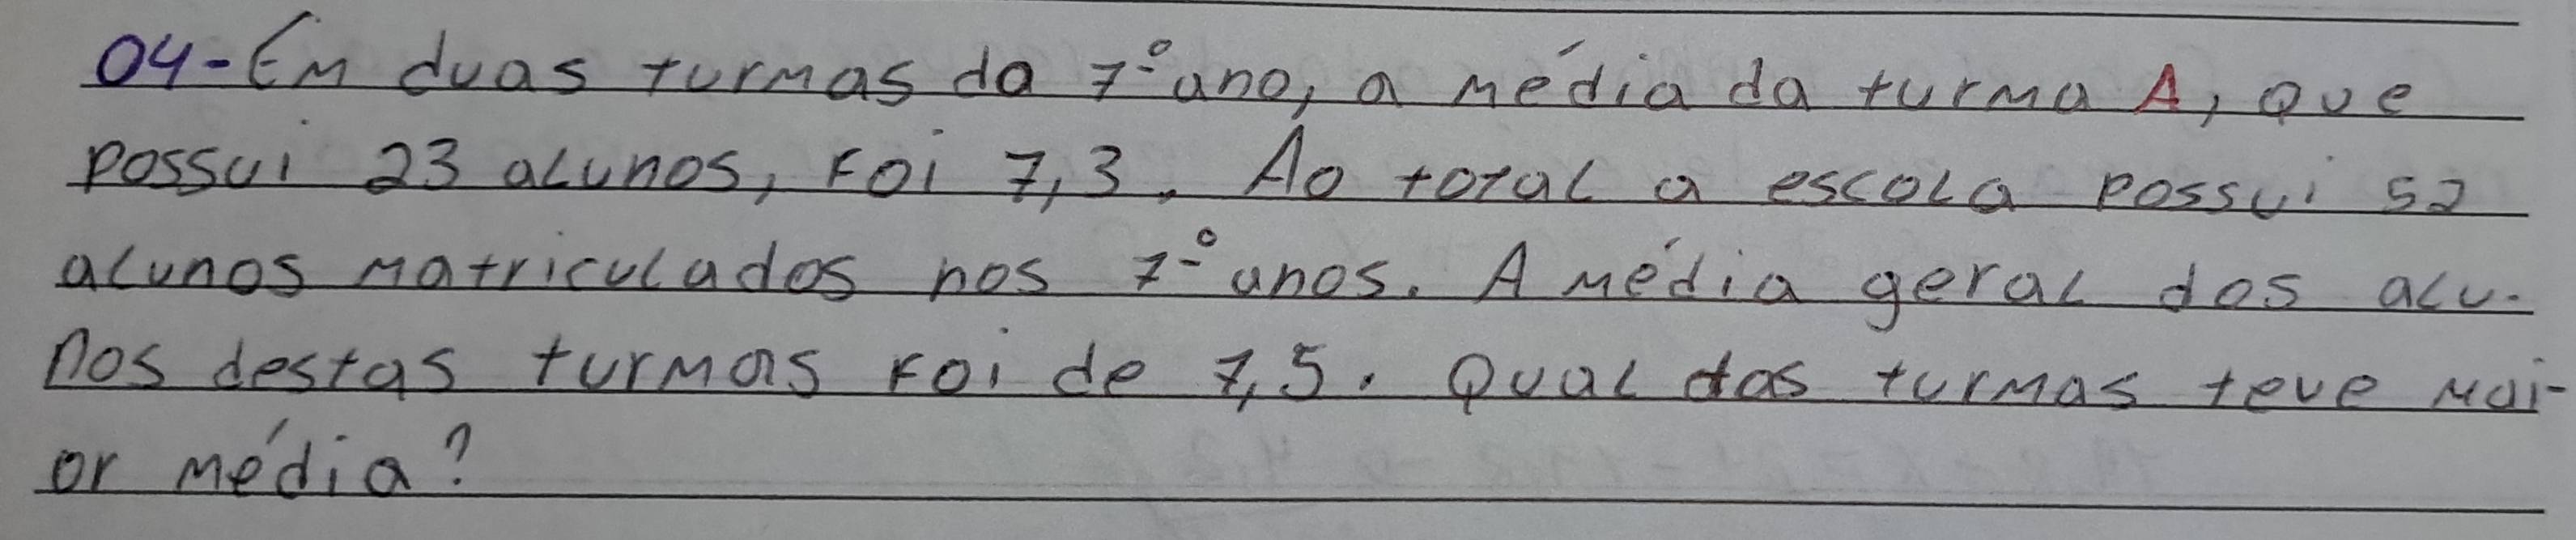 04-Em duas turmas da 7º ano, a média da turma A, que
possui 23 alunos, foi 7,3. Ao total a escola possui 52
alunos matriculados nos 7º anos. A média geral dos alu-
nos destas turmas foi de 7,5. Qual das turmas teve mai-
or média?